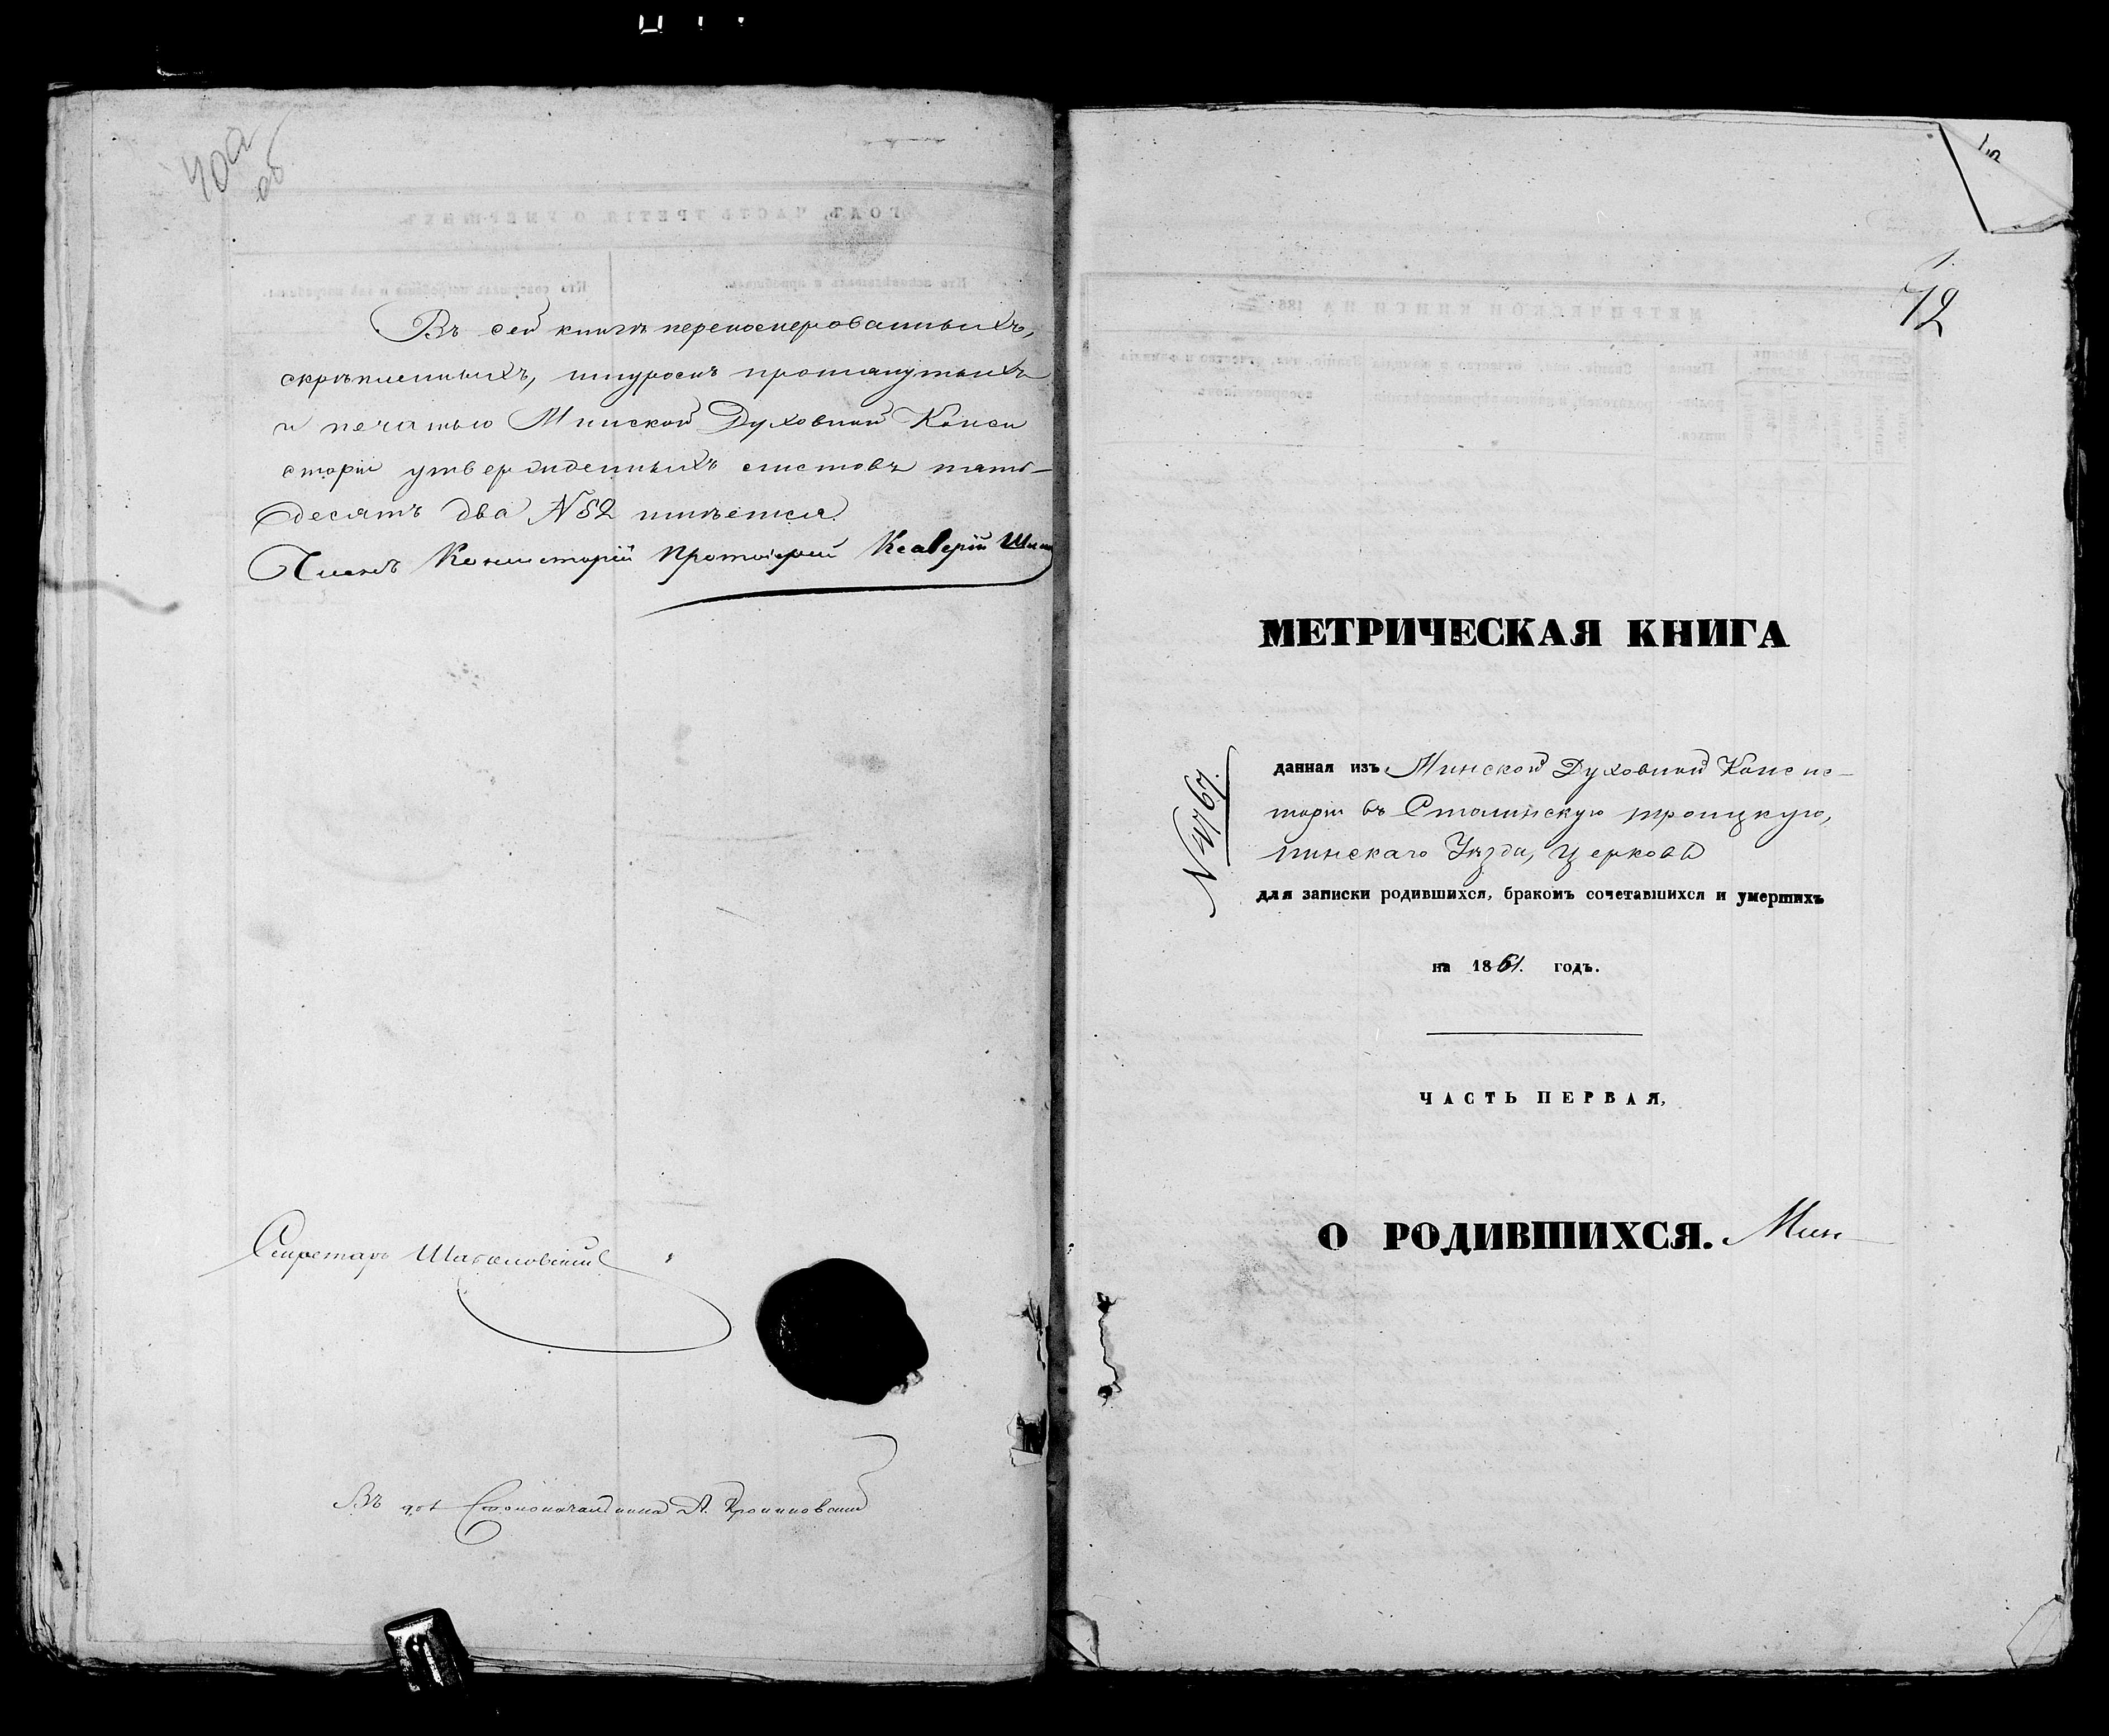 40а
об
Въ сей книгѣ перенумерованныхъ,
скрѣпленныхъ, шнуромъ протянутыхъ
и печатью Минской Духовной Конси
сторіи утвержденныхъ листовъ пять-
десятъ два № 52 имѣется.
Членъ Консисторіи Протоіерей Ксаверій
Секретарь
Въ дол Столоначальника А.
1.
72
МЕТРИЧЕСКАЯ КНИГА
№ 4767.
данная изъ Минской Духовной Консис-
торіи въ Столинскую троицкую,
пинскаго Уѣзда, церковь
для записки родившихся, бракомъ сочетавшихся и умершихъ
на 1861. годъ.
ЧАСТЬ ПЕРВАЯ,
О РОДИВШИХСЯ. Мин-